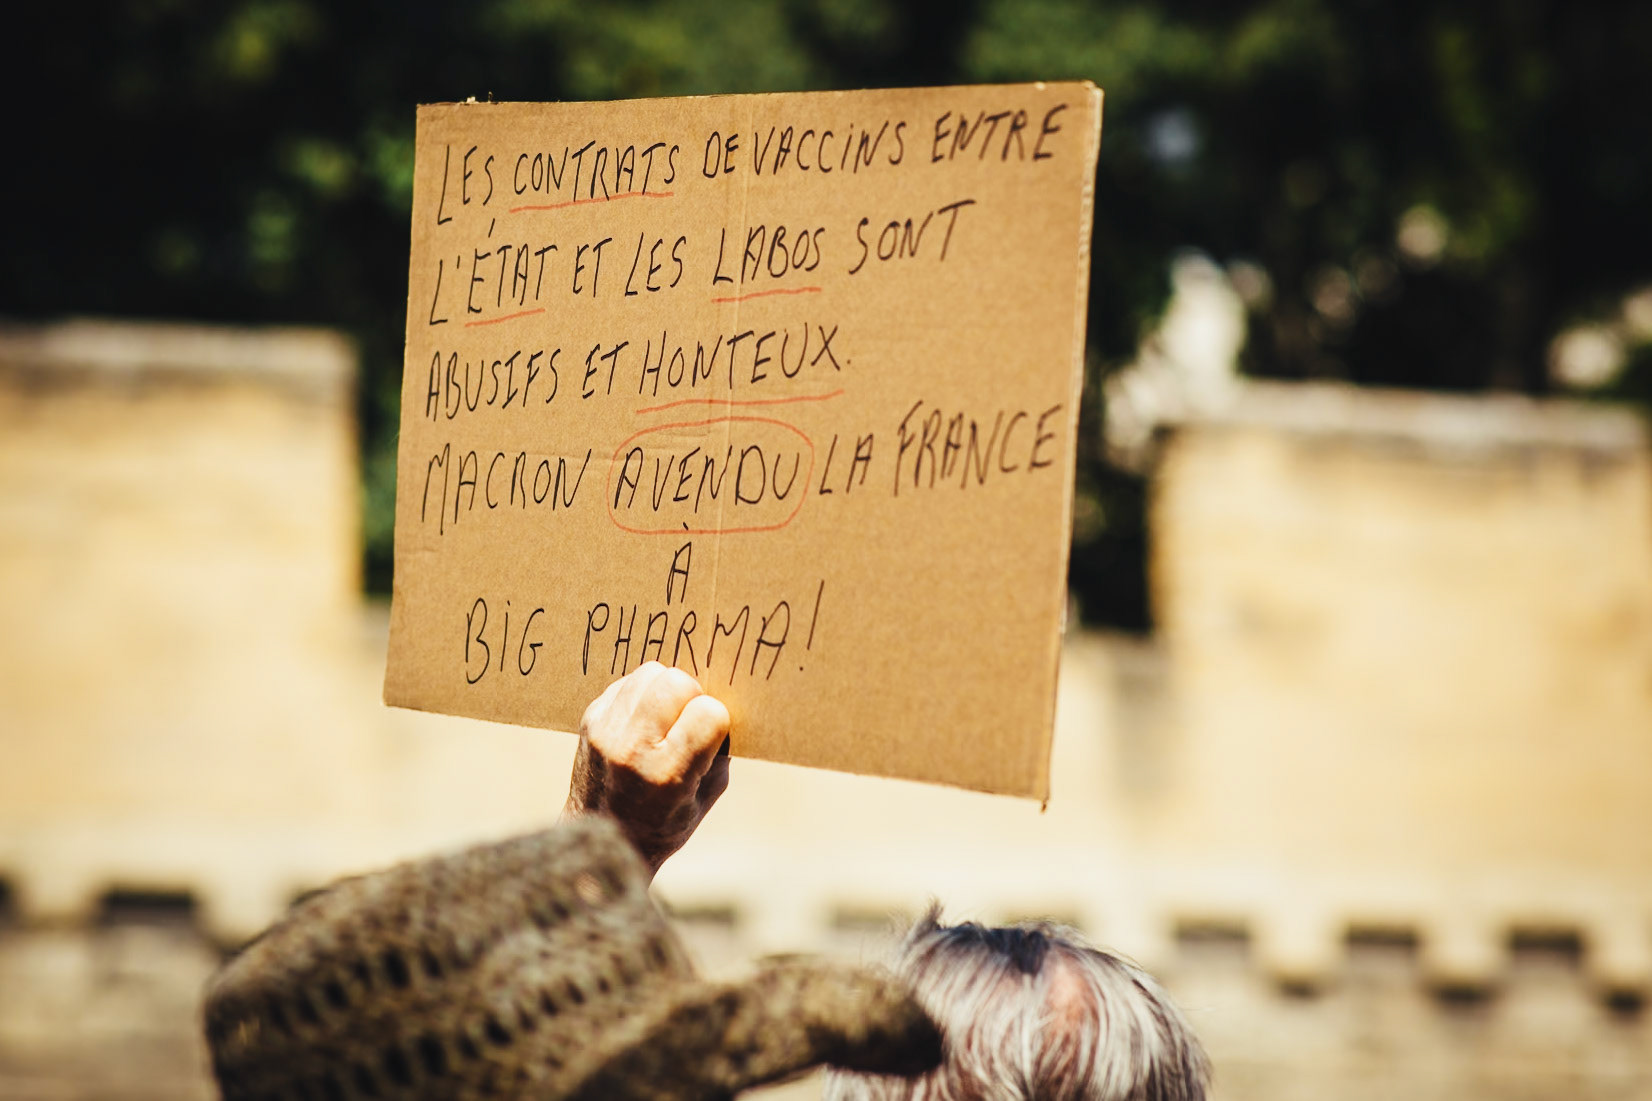 LES CONTRATS DE VACCiNS ENTRE
L'ÉTAT ET LES LABOS SONT
ABUSIFS ET HONTEUX.
MACRON A VENDU LA FRANCE
À
BiG PHARMA!